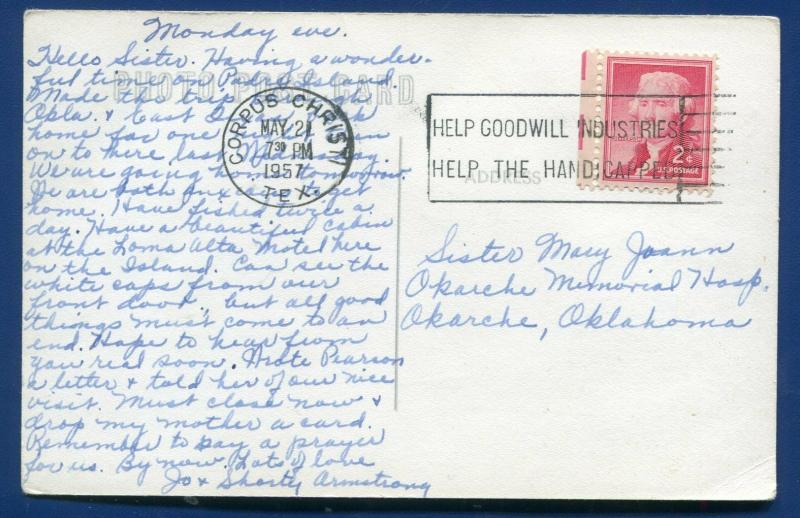 Monday eve.
Hello Sister. Having a wonder-
ful time on Padre Island.
PHOTO POST CARD
Made the trip through
Opla. & East
home for one
on to here last Wednesday.
We are going home tomorrow.
We are both anxious to get
home. Have fished twice a
day. Have a beautiful cabin
at the Loma Alta Motel here
on the Island. Can see the
white caps from our
front door, but all good
things must come to an
end. Hope to hear from
you real soon. Wrote Pearson
a letter & told her of our nice
visit. Must close now &
drop my mother a card.
Remember to say a prayer
for us. By now. Lots of love
Jo & Shorty Armstrong
CORPUS CHRISTI
MAY 21
730 PM
1957
TEX.
HELP GOODWILL INDUSTRIES
HELP THE HANDICAPPED
2¢
U.S. POSTAGE
ADDRESS
Sister Mary Joann
Okarche Memorial Hosp.
Okarche, Oklahoma